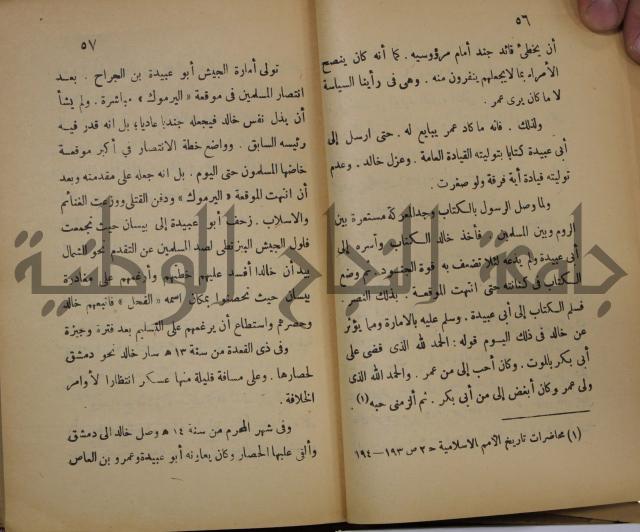 ٥٦
أن يخطئ قائد جند أمام مرؤوسيه . كما أنه كان ينصح
الأمراء بما لا يجعلهم ينفرون منه . وهى فى رأينا السياسة
لا ما كان يرى عمر .
ولذلك . فانه ما كاد عمر يبايع له . حتى ارسل إلى
أبى عبيدة كتابا بتوليته القيادة العامة . وعزل خالد . وعدم
توليته قيادة أية فرقة ولو صغرت .
ولما وصل الرسول بالكتاب وجد المعركة مستعرة بين
الروم وبين المسلمين . فأخذ خالد الكتاب وأسره إلى
أبى عبيدة ولم يذعه لئلا تضعف به قوة الجنود . ثم وضع
الكتاب فى كنانته حتى انتهت الموقعة . بذلك النصر .
فسلم الكتاب إلى أبى عبيدة . وسلم عليه بالامارة ومما يؤثر
عن خالد فى ذلك اليوم قوله : الحمد لله الذى قضى على
أبى بكر بالموت . وكان أحب إلى من عمر . والحمد لله الذى
ولى عمر وكان أبغض إلى من أبى بكر . ثم ألزمنى حبه (١) .
(١) محاضرات تاريخ الأمم الاسلامية ح ٢ ص ١٩٣ - ١٩٤
٥٧
تولى أمارة الجيش أبو عبيدة بن الجراح . بعد
انتصار المسلمين فى موقعة « اليرموك » مباشرة . ولم يشأ
أن يذل نفس خالد فيجعله جنديا عاديا ؛ بل انه قدر فيه
رئيسه السابق . وواضع خطة الانتصار في أكبر موقعة
خاضها المسلمون حتى اليوم . بل انه جعله على مقدمته وبعد
أن انتهت الموقعة « اليرموك » ودفن القتلى ووزعت الغنائم
والاسلاب . زحف أبو عبيدة إلى بيسان حيث تجمعت
فلول الجيش البيزنطى لصد المسلمين عن التقدم نحو الشمال
بيد أن خالدا أفسد عليهم خطتهم وأرغمهم على مغادرة
بيسان حيث تحصنوا بمكان اسمه « الفحل » فاتبعهم خالد
وحصرهم واستطاع أن يرغمهم على التسليم بعد فترة وجيزة
وفى ذى القعدة من سنة ١٣ ه سار خالد نحو دمشق
لحصارها . وعلى مسافة قليلة منها عسكر انتظارا لأوامر
الخلافة .
وفى شهر المحرم من سنة ١٤ ه وصل خالد الى دمشق
وألقى عليها الحصار وكان يعاونه أبو عبيدة وعمرو بن العاص
جامعة النجاح الوطنية